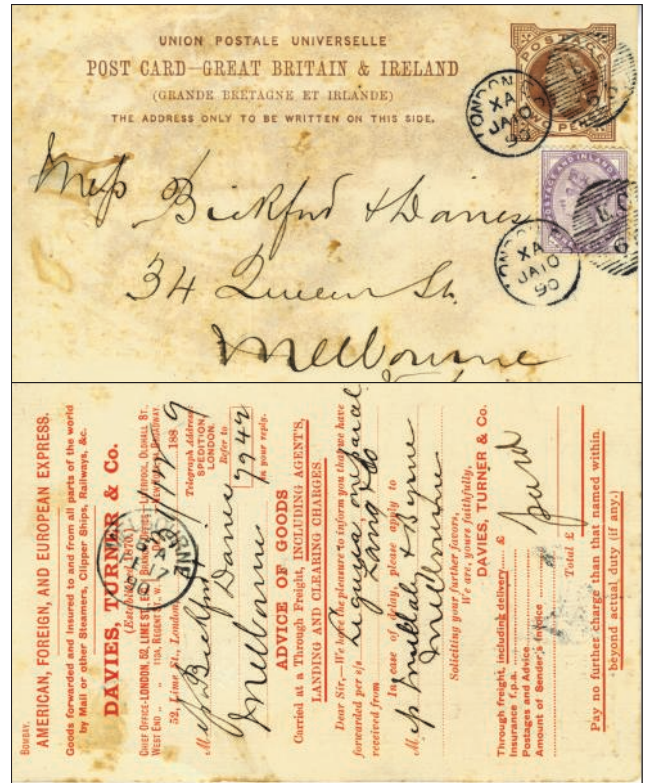 UNION POSTALE UNIVERSELLE
POST CARD—GREAT BRITAIN & IRELAND
(GRANDE BRETAGNE ET IRLANDE)
THE ADDRESS ONLY TO BE WRITTEN ON THIS SIDE.
POSTAGE
LONDON
XA
JA10
90
POSTAGE AND INLAND
LONDON
XA
JA10
90
Mess Bickford & Davies
34 Queen St.
Melbourne
BOMBAY.
AMERICAN, FOREIGN, AND EUROPEAN EXPRESS.
Goods forwarded and Insured to and from all parts of the world
by Mail or other Steamers, Clipper Ships, Railways, &c.
DAVIES, TURNER & Co.
(Established 1870.)
CHIEF OFFICE-LONDON, 52, LIME ST., E.C. LIVERPOOL, OLDHALL ST.,
WEST END „ „ 113A, REGENT ST., W. BROADWAY.
52, Lime St., London, 1889
Telegraph Address:
SPEDITION
LONDON.
Mess Bickford Davies
Refer to
7942
in your reply.
Melbourne
MELBOURNE
17
90
ADVICE OF GOODS
Carried at a Through Freight, INCLUDING AGENT'S,
LANDING AND CLEARING CHARGES
Dear Sir,—We have the pleasure to inform you that we have
forwarded per s/s. Liguria one parcel
received from Lang & Co
In case of delay, please apply to
M. Mullaly & Byrne
Melbourne
Soliciting your further favors,
We are, yours faithfully,
DAVIES, TURNER & Co.
Through freight, including delivery £
Insurance f.p.a.
Postages and Advice
Amount of Sender's Invoice
paid
Total £
Pay no further charge than that named within.
beyond actual duty (if any.)